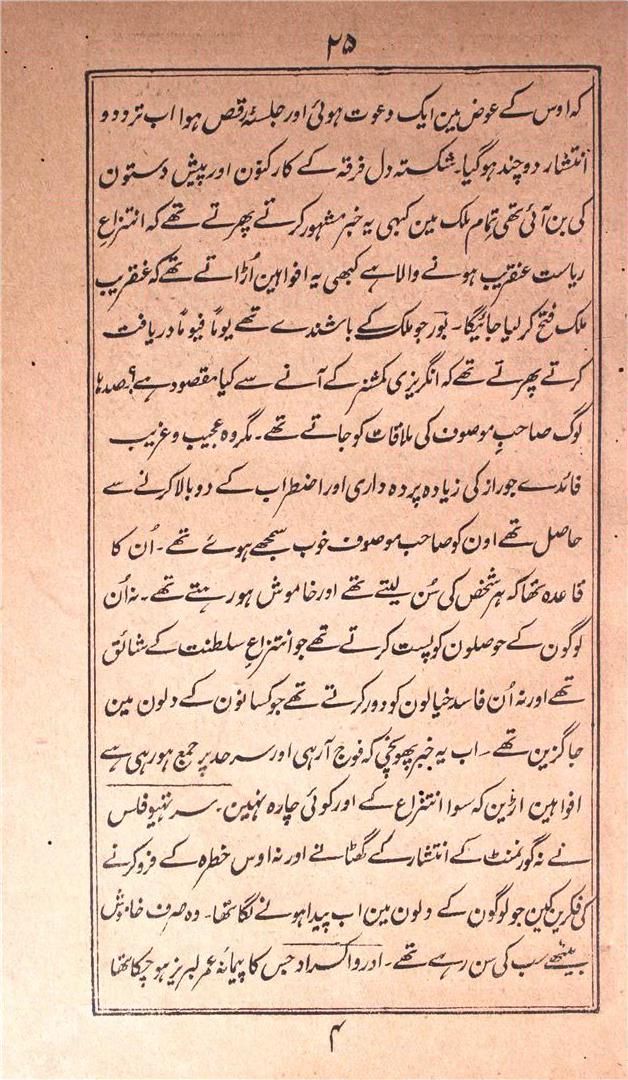 ۲۵
کہ اوس کے عوض مین ایک دعوت ہوئی اور جلسۂ رقص ہوا اب تردد و
انتشار دوچند ہوگیا۔ شکستہ دل فرقہ کے کارکنون اور پیش دستون
کی بن آئی تھی تمام ملک مین کبھی یہ خبر مشہور کرتے پھرتے تھے کہ انتزاعِ
ریاست عنقریب ہونے والا ہے کبھی یہ افواہین اُڑاتے تھے کہ عنقریب
ملک فتح کر لیا جائیگا۔ بَور جو ملک کے باشندے تھے یوماً فیوماً دریافت
کرتے پھرتے تھے کہ انگریزی کمشنر کے آنے سے کیا مقصود ہے؟ صدہا
لوگ صاحبِ موصوف کی ملاقات کو جاتے تھے۔ مگر وہ عجیب و غریب
فائدے جو راز کی زیادہ پردہ داری اور اضطراب کے دوبالا کرنے سے
حاصل تھے اون کو صاحب موصوف خوب سمجھے ہوئے تھے۔ اُن کا
قاعدہ تھا کہ ہر شخص کی سُن لیتے تھے اور خاموش ہو رہتے تھے۔ نہ اُن
لوگون کے حوصلون کو پست کرتے تھے جو انتزاعِ سلطنت کے شائق
تھے اور نہ اُن فاسد خیالون کو دور کرتے تھے جو کسانون کے دلون مین
جاگزین تھے۔ اب یہ خبر پھونچی کہ فوج آرہی اور سرحد پر جمع ہورہی ہے
افواہین اڑین کہ سوا انتزاع کے اور کوئی چارہ نہین۔ سر تہیوفلس
نے نہ گورنمنٹ کے انتشار کے گھٹانے اور نہ اوس خطرہ کے فرو کرنے
کی فکرین کین جو لوگون کے دلون مین اب پیدا ہونے لگا تھا۔ وہ صرف خاموش
بیٹھے سب کی سن رہے تھے۔ ادروا کسراد جس کا پیمانۂ عمر لبریز ہوچکا تھا
۴